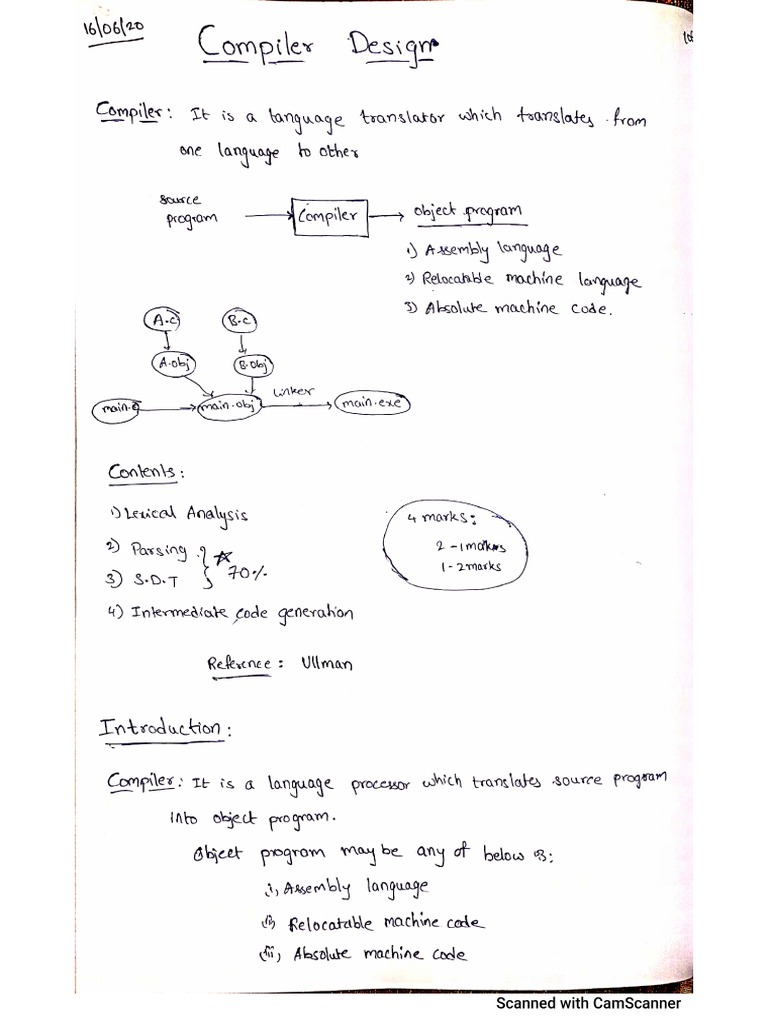 16/06/20
Compiler Design
Compiler: It is a language translator which translates from
one language to other
source
program
Compiler
object program
1) Assembly language
2) Relocatable machine language
3) Absolute machine code.
A.c
B.c
A.obj
B.obj
main.c
main.obj
Linker
main.exe
Contents:
1) Lexical Analysis
2) Parsing
3) S.D.T
70%
4) Intermediate code generation
4 marks:
2 - 1 marks
1 - 2 marks
Reference: Ullman
Introduction:
Compiler: It is a language processor which translates source program
into object program.
Object program may be any of below 3:
i, Assembly language
ii) Relocatable machine code
iii, Absolute machine code
Scanned with CamScanner